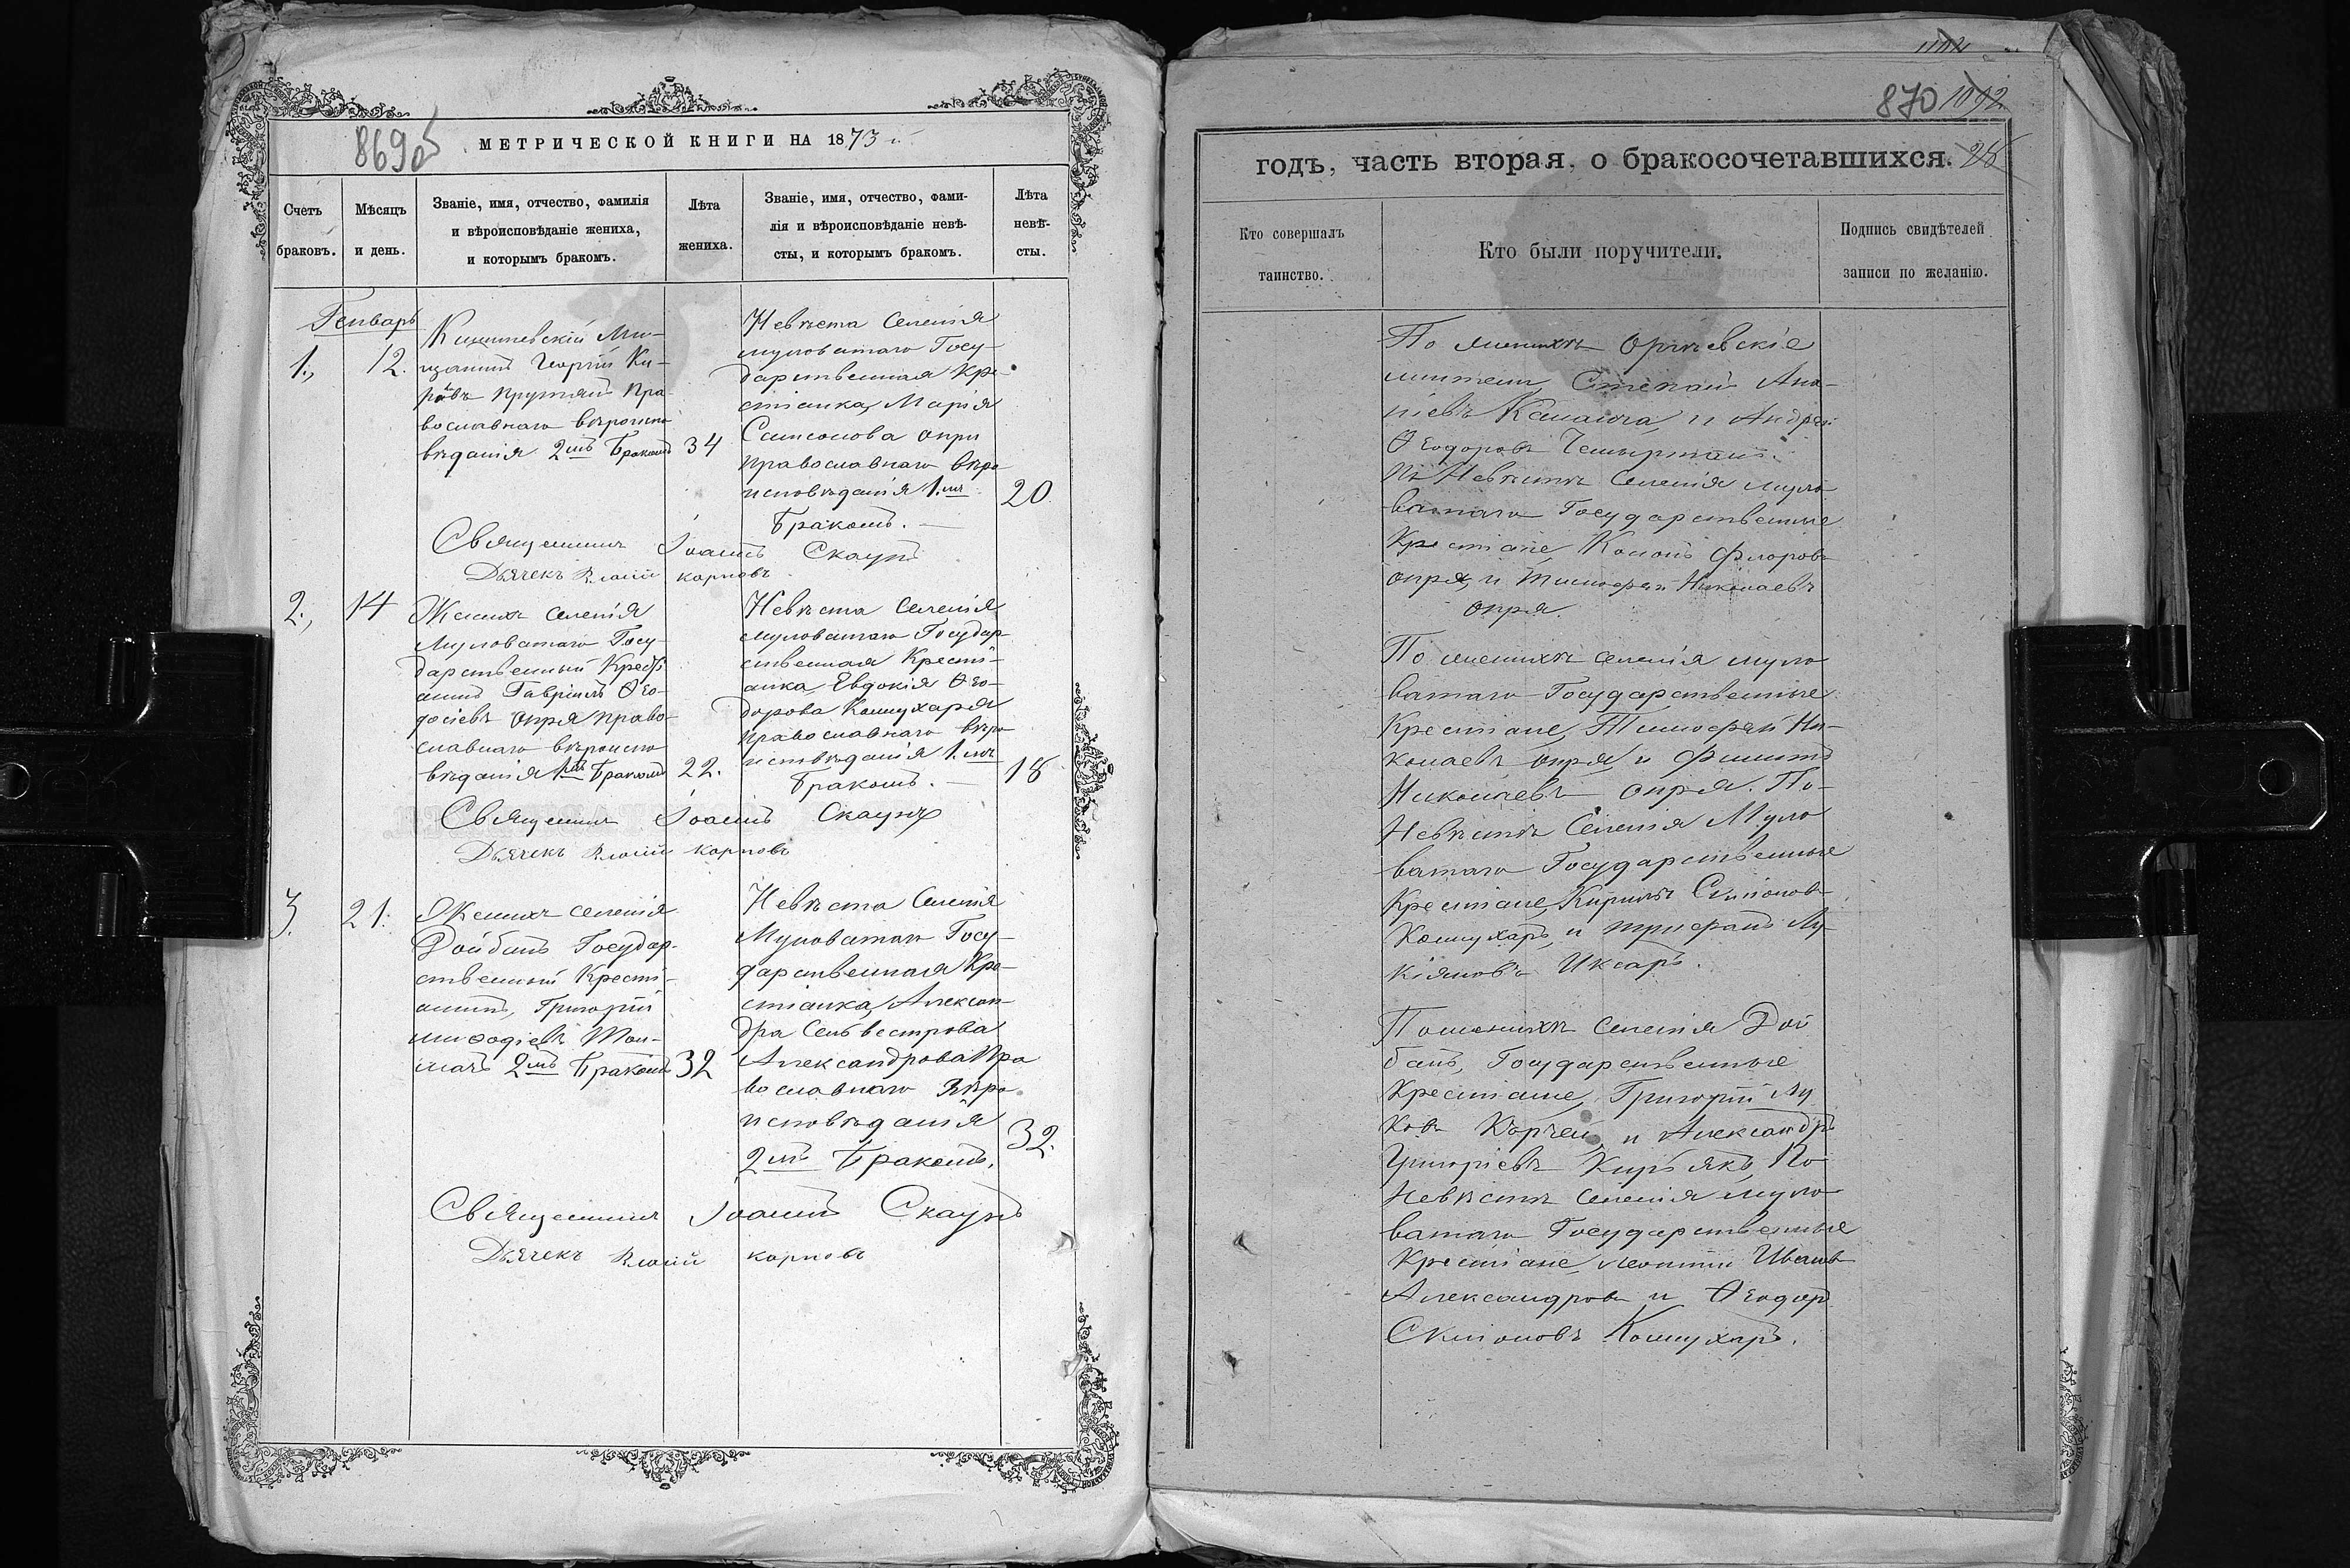 869об
МЕТРИЧЕСКОЙ КНИГИ НА 1873
Счетъ
браковъ.
Мѣсяцъ
и день.
Званіе, имя, отчество, фамилія
и вѣроисповѣданіе жениха,
и которымъ бракомъ.
Лѣта
жениха.
Званіе, имя, отчество, фами-
лія и вѣроисповѣданіе невѣ-
сты, и которымъ бракомъ.
Лѣта
невѣ-
сты.
Генварь
1.,
12.
Кишиневскій Мѣ-
щанинъ Георгій Ки-
ровъ Крутянъ Пра-
вославнаго вѣроиспо
вѣданія 2мъ Бракомъ
34
Невѣста Селенія
Муловатаго Госу-
дарственная Кре-
стіанка Марія
Самсонова Опри
православнаго вѣро
исповѣданія 1.мъ
Бракомъ.
20
Священникъ Іоаннъ Скаунъ
Дьячекъ Карповъ
2.,
14
Женихъ селенія
Муловатаго Госу-
дарственный Кресті
анинъ Гавріилъ Ѳео-
досіевъ Опря право-
славнаго вѣроиспо
вѣданія 1мъ Бракомъ
22.
Невѣста Селенія
Муловатаго Государ-
ственная Кресті-
анка Евдокія Ѳео-
дорова Кошухаря
православнаго вѣро
исповѣданія 1.мъ
Бракомъ.
18
Священникъ Іоаннъ Скаунъ
Дьячекъ Карповъ
3.
21.
Женихъ селенія
Дойбанъ Государ-
ственный Кресті-
анинъ, Григорій
Меѳодіевъ
2мъ Бракомъ
32
Невѣста Селенія
Муловатаго Госу-
дарственная Кре-
стіанка, Алексан-
дра Сельвестрова
Александрова Пра
вославнаго Вѣро
исповѣданія
2мъ Бракомъ.
32.
Священникъ Іоаннъ Скаунъ
Дьячекъ Карповъ
870 1092
годъ, часть вторая, о бракосочетавшихся. 28
Кто совершалъ
таинство.
Кто были поручители.
Подпись свидѣтелей
записи по желанію.
По женихѣ Оргѣевскіе
жители, Степанъ Ана-
ніевъ и Андрей
Ѳеодоровъ Чемыртанъ.
По Невѣстѣ Селенія Муло-
ватаго Государственные
Крестіане, Кононъ Флоровъ
Опря, и Тимофей Николаевъ
Опря.
По женихѣ селенія Муло
ватаго Государственные
Крестіане, Тимофей Ни-
колаевъ Опря и Филиппъ
Николаевъ Опря. По-
Невѣстѣ Селенія Муло
ватаго Государственные
Крестіане, Кирилъ Симіоновъ
Кошухарь, и Трифанъ Лу-
кіяновъ Иксарь.
По женихѣ Селенія Дой
банъ, Государственные
Крестіане, Григорій Лу
ковъ Корчей, и Александръ
Григоріевъ Кирьякъ, По
Невѣстѣ Селенія Муло
ватаго Государственные
Крестіане, Леонтій Ивановъ
Александровъ и Ѳеодоръ
Симіоновъ Кошухарь.